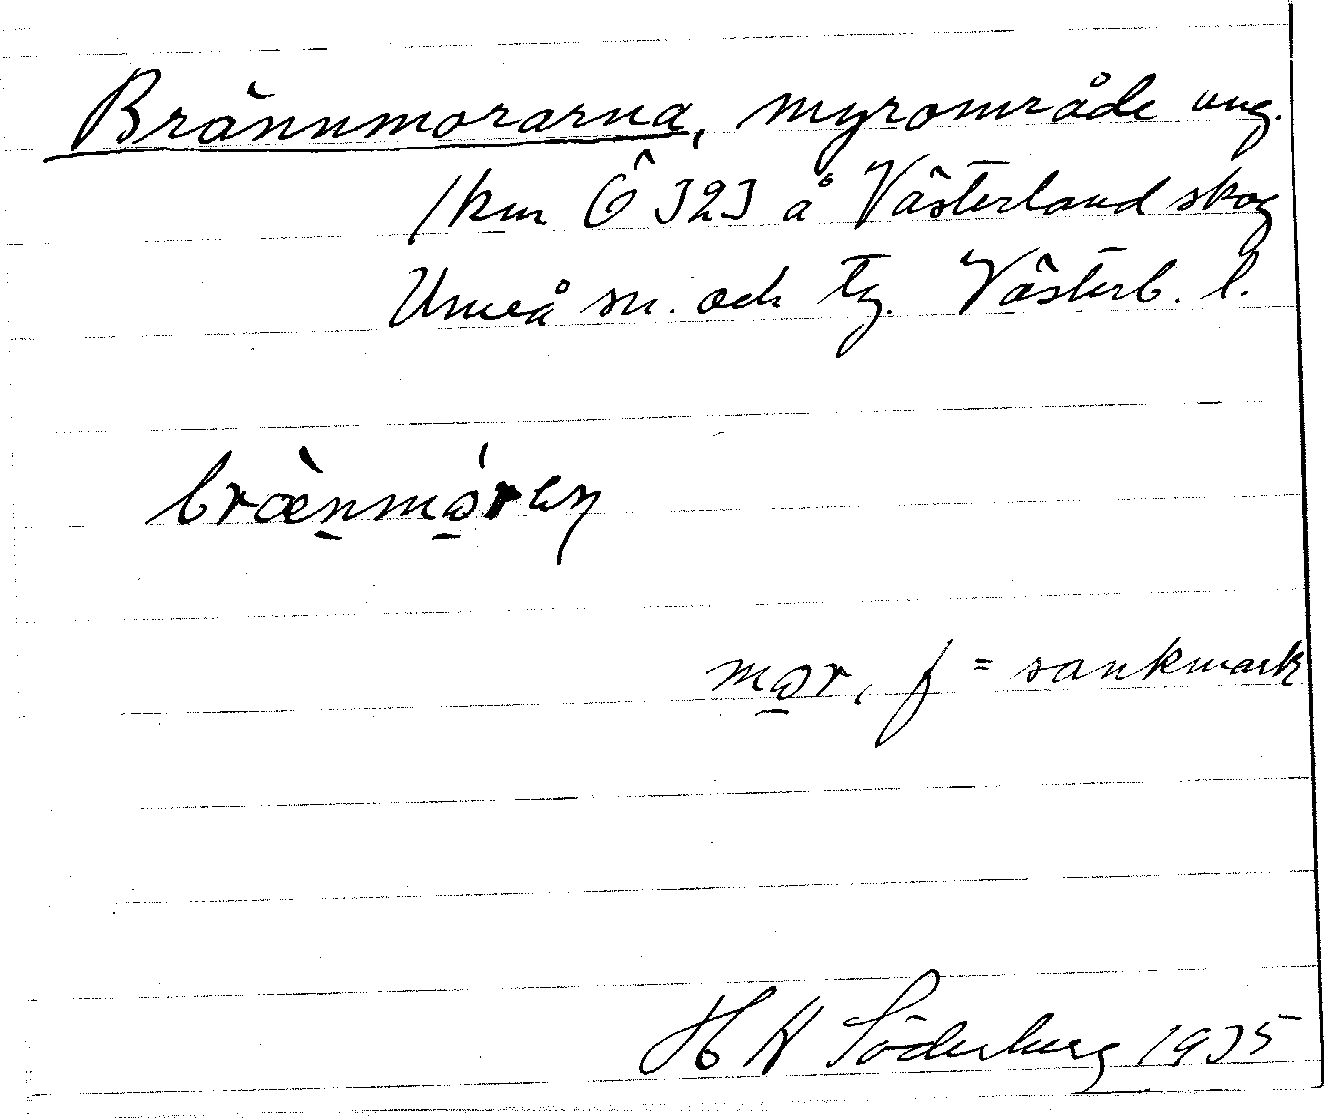 Brännmorarna, myrområde ung.
1 km Ö 323 å Västerland skog
Umeå sn. och tg. Västerb. l.
bræ̀n̠mǫ́ręŋ
mo̠r, f = sankmark
H H Söderberg 1935